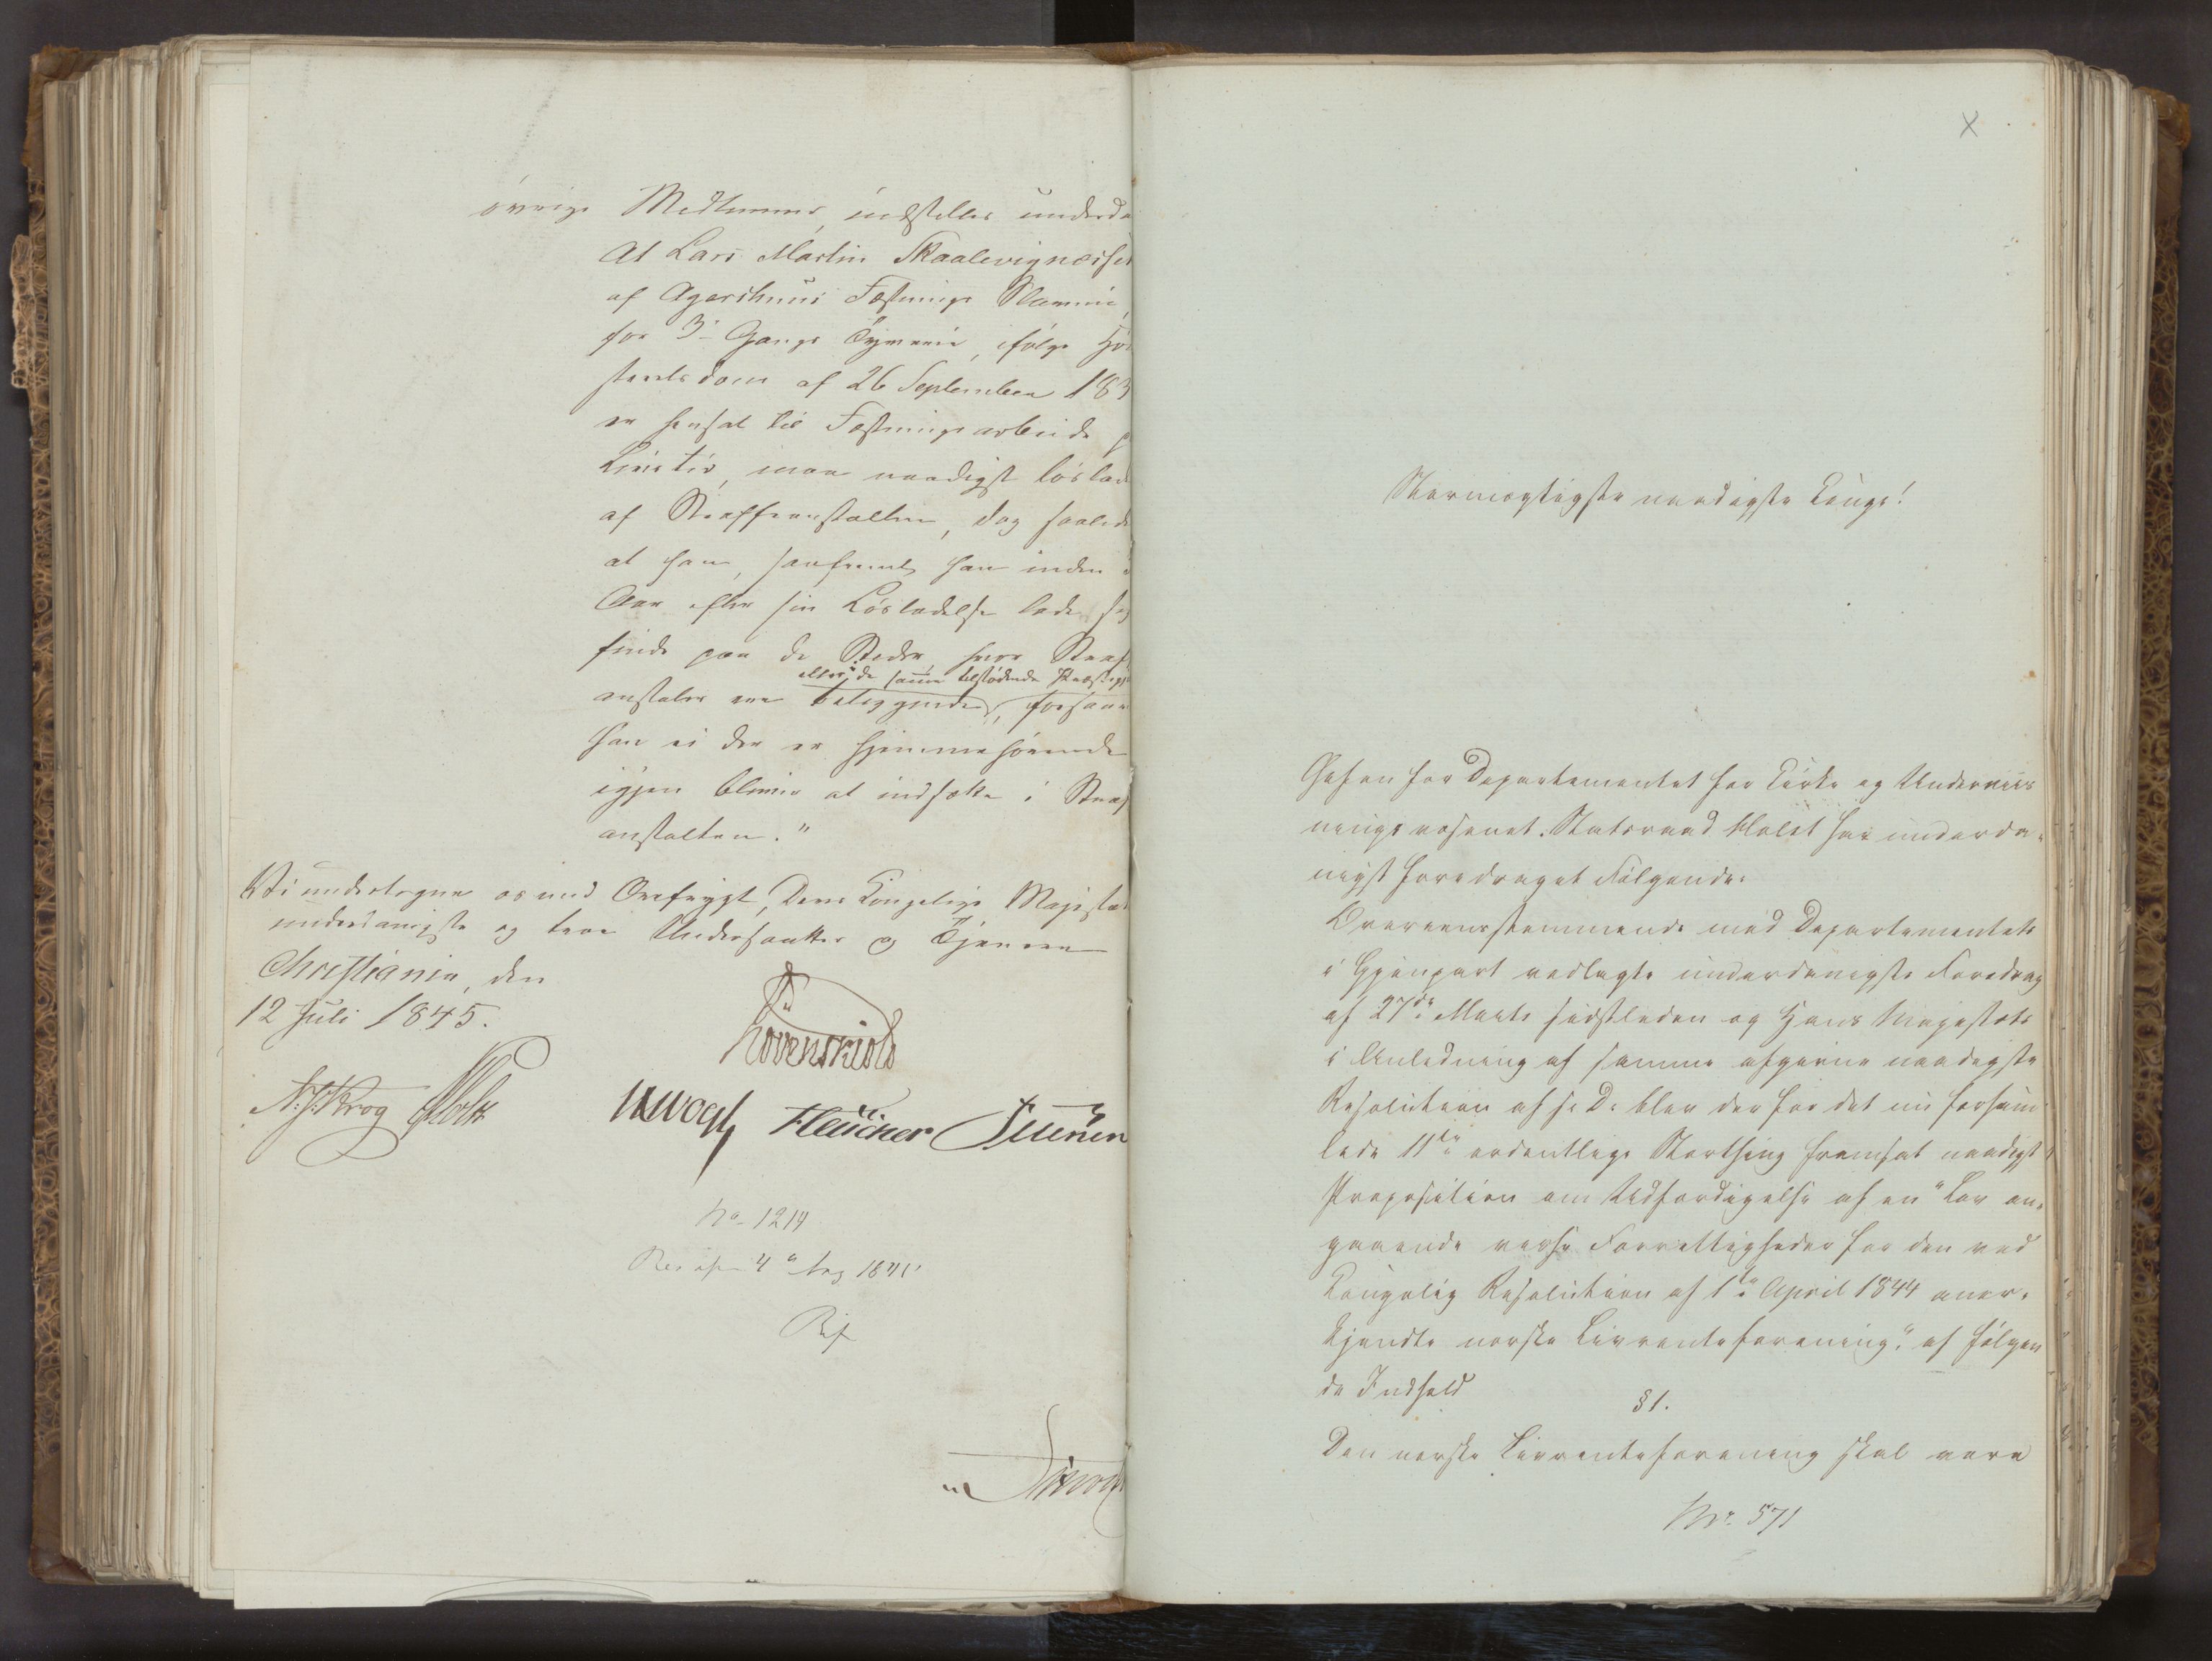 øvrige Medlemmer, indstilles underda
At Lars Martin Skaalevignæsset
af Agershuus Fæstnings Slaverie,
for 3die Gangs Tyverie, ifølge Høi
steretsdom af 26 September 183
er hensat til Fæstningsarbeide p
Livstid, maa naadigst løslad
af Straffeanstalten, dog saalede
at han, saafremt han inden
Aar efter sin Løsladelse lader sig
finde paa de Steder, hvor Straf
eller i de samme tilstødende Præstegj
anstalter ere beliggende, forsaav
han ei der er hjemmehørende
igjen bliver at indsætte i Straf
anstalten."
Vi undertegne os med Ærefrygt, Deres Kongelige Majestæt
underdanigste og troe Undersaatter og Tjenere
Christiania, den
12 Juli 1845.
Løvenskiold
N: J: Krog Holst
JHVogt Fleischer Petersen
No. 1214
Res af 4 Aug 1845
X
Stormægtigste naadigste Konge!
Chefen for Departementet for Kirke og Underviis
ningsvæsenet, Statsraad Holst har underda-
nigst foredraget Følgende:
Overeensstemmende med Departementets
i Gjenpart vedlagte underdanigste Foredrag
af 27de Marts sidstleden og Hans Majestæts
i Anledning af samme afgivne naadigste
Resolution af s. D. blev der for det nu forsam
lede 11te ordentlige Storthing fremsat naadigst
Proposition om Udfærdigelse af en "Lov an-
gaaende visse Forrettigheder for den ved
Kongelig Resolution af 1ste April 1844 aner-
kjendte norske Livrenteforening," af følgen
de Indhold
§ 1.
Den norske Livrenteforening skal være
No. 571